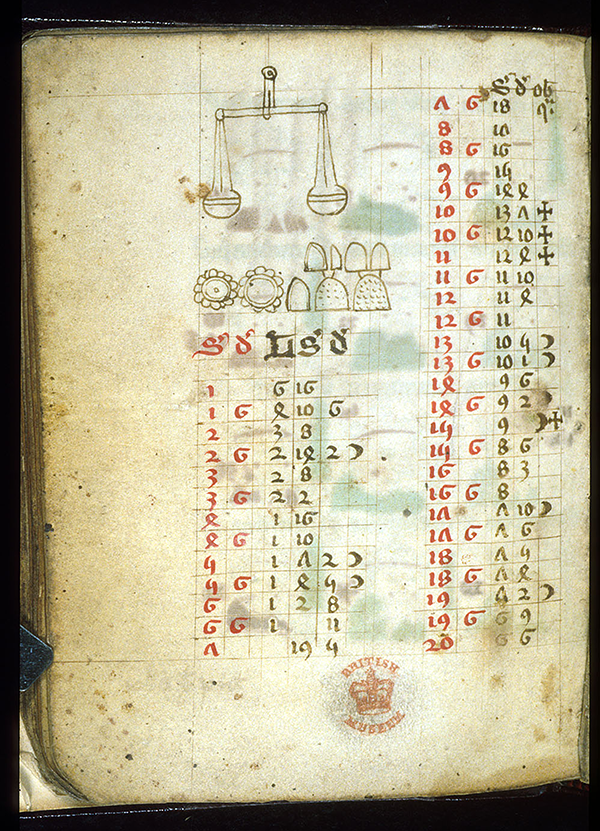 s d L s d
1 6 16
1 6 4 10 6
2 3 8
2 6 2 14 2 )
3 2 8
3 6 2 2
4 1 16
4 6 1 10
5 1 7 2 )
5 6 1 4 5 )
6 1 2 8
6 6 1 11
7 19 5
s d ob
7 6 18 q
8
8 6 16
9 15
9 6 14 4
10 13 7 +
10 6 12 10 +
11 12 4 +
11 6 11 10
12 11 4
12 6 11
13 10 5 )
13 6 10 1 )
14 9 6
14 6 9 2 )
15 9 )+
15 6 8 6
16 8 3
16 6 8
17 7 10 )
17 6 7 6
18 7 5
18 6 7 4
19 7 2 )
19 6 6 9
20 6 6
BRITISH
MUSEUM